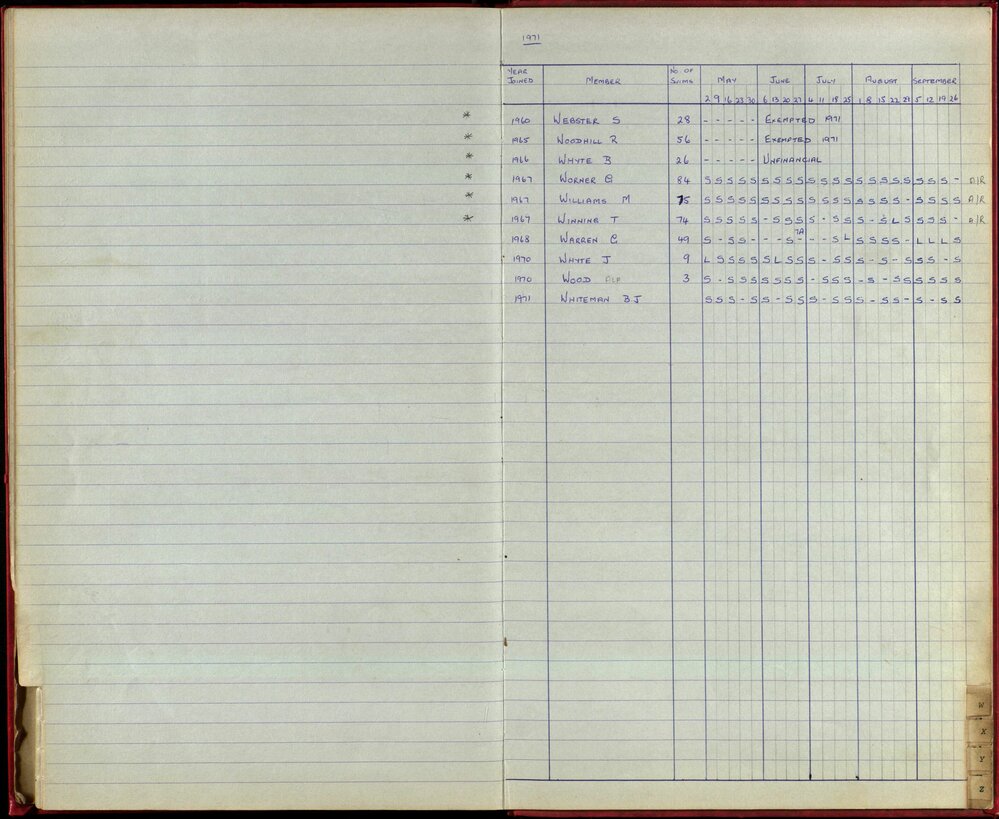 1971
YEAR JOINED MEMBER NO OF SWIMS MAY JUNE JULY AUGUST SEPTEMBER
2 9 16 23 30 6 13 20 27 4 11 18 25 1 8 15 22 29 5 12 19 26
* 1960 WEBSTER S 28 - - - - - EXEMPTED 1971
* 1965 WOODHILL R 56 - - - - - EXEMPTED 1971
* 1966 WHYTE B 26 - - - - - UNFINANCIAL
* 1967 WORNER G 84 S S S S S S S S S S S S S S S S S S S S S - A/R
* 1967 WILLIAMS M 75 S S S S S S S S S S S S S S S S S - S S S S A/R
* 1967 WINNING T 74 S S S S S - S S S S - S S S - S L S S S S - A/R
TA
1968 WARREN G 49 S - S S - - - S - - - S L S S S S - L L L S
1970 WHYTE J 9 L S S S S S L S S S - S S S - S - S S S - S
1970 WOOD ALF 3 S - S S S S S S S - S S S - S - S S S S S S
1971 WHITEMAN B J S S S - S S - S S S - S S S - S S - S - S S
W
X
Y
Z